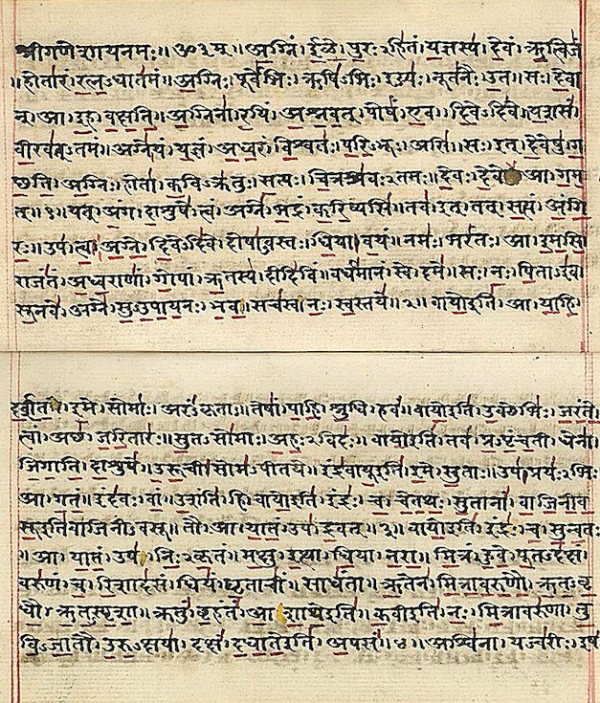 श्रीगणेशायनमः॥ॐ३म्॥अग्निं।ईळे।पुरःऽहितं।यज्ञस्य।देवं।ऋत्विजं
॥होतारं।रत्नऽधातमं॥अग्निः।पूर्वेभिः।ऋषिऽभिः।ईड्यः।नूतनैः।उत॥सः।देवा
न्।आ।इह।वक्षति॥अग्निना।रयिं।अश्नवत्।पोषं।एव।दिवेऽदिवे॥यशसं
वीरवत्ऽतमं॥अग्ने।यं।यज्ञं।अध्वरं।विश्वतः।परिऽभूः।असि॥सः।इत्।देवेषु।ग
च्छति॥अग्निः।होता।कविऽक्रतुः।सत्यः।चित्रश्रवःऽतमः॥देवः।देवे आ।गम
त्॥१॥यत्।अंग।दाशुषे।त्वं।अग्ने।भद्रं।करिष्यसि॥तव।इत्।तत्।सत्यं।अंगि
रः॥उप।त्वा।अग्ने।दिवेऽदिवे।दोषाऽवस्तः।धिया।वयं॥नमः।भरंतः।आ।इमसि॥
राजंतं।अध्वराणां।गोपां।ऋतस्य।दीदिविं॥वर्धमानं।स्वे।दमे॥सः।नः।पिताऽइव
सूनवे।अग्ने।सुऽउपायनः।भव॥सचस्व।नः।स्वस्तये॥२॥वायोइति।आ।याहि।
दर्शत।इमे।सोमाः।अरंऽकृताः॥तेषां।पाहि।श्रुधि।हवं॥वायोइति।उक्थेभिः।जरंते।
त्वां।अच्छ।जरितारः॥सुतऽसोमाः।अहःऽविदः॥वायोइति।तव।प्रऽपृंचती।धेना।
जिगाति।दाशुषे॥उरूची।सोमऽपीतये॥इंद्रवायूइति।इमे।सुताः॥उप।प्रयःऽभिः
आ।गतं॥इंदवः।वां।उशंति।हि॥वायोइति।इंद्रः।च।चेतथः।सुतानां।वाजिनीव
सूइतिवाजिनीऽवसू॥तौ।आ।यातं।उप।द्रवत्॥३॥वायोइति।इंद्रः।च।सुन्वतः
॥आ।यातं।उप।निःऽकृतं॥मक्षु।इत्था।धिया।नरा॥मित्रं।हुवे।पूतऽदक्षं।
वरुणं।च।रिशादसं॥धियं।घृताचीं।साधंता॥ऋतेन।मित्रावरुणौ।ऋतऽवृ
धौ।ऋतऽस्पृशा॥क्रतुं।बृहंतं।आशाथेइति॥कवीइति।नः।मित्रावरुणा।तु
विऽजातौ।उरुऽक्षया॥दक्षं।दधातेइति।अपसं॥४॥अश्विना।यज्वरीः।इषः